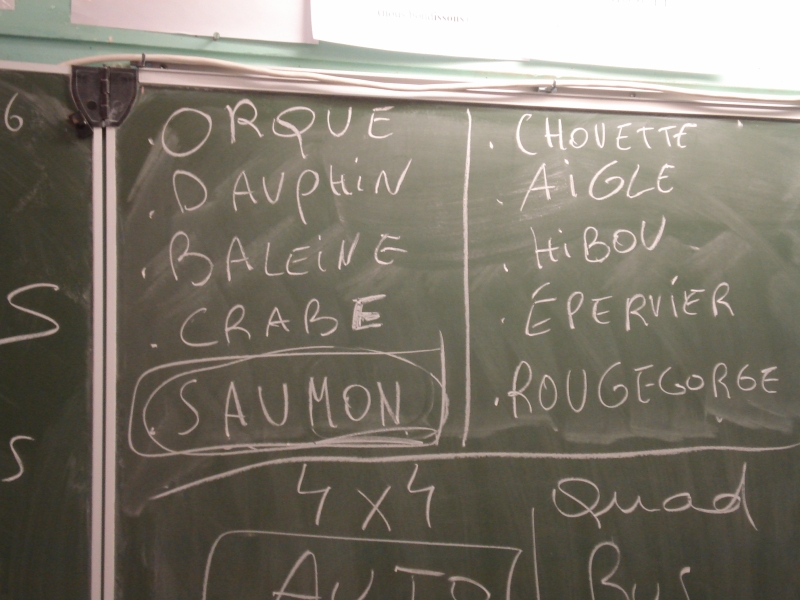 6
S
S
ORQUE
DAUPHIN
BALEINE
CRABE
SAUMON
CHOUETTE
AIGLE
HIBOU
ÉPERVIER
ROUGEGORGE
4x4
Quad
AUTO
Bus